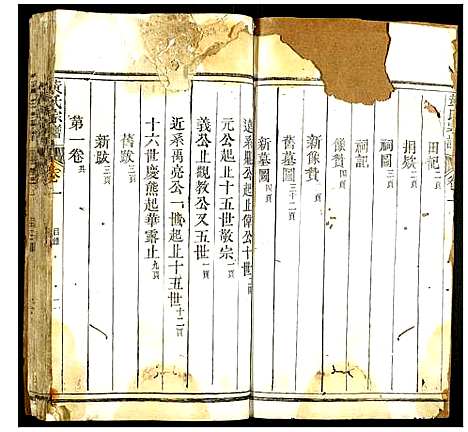 田記二頁
捐欵二頁
祠圖
祠記
像贊四頁
新像贊二頁
舊墓圖三十二頁
新墓圖四頁
遠系
公起止偉公十世
元公起止十五世敬宗一頁
義公止觀教公又五世一頁
近系禹亮公一世起止十五世十二頁
十六世慶熊起華露止九頁
舊跋三頁
新跋三頁
第一卷共
氏宗譜
卷一
目錄